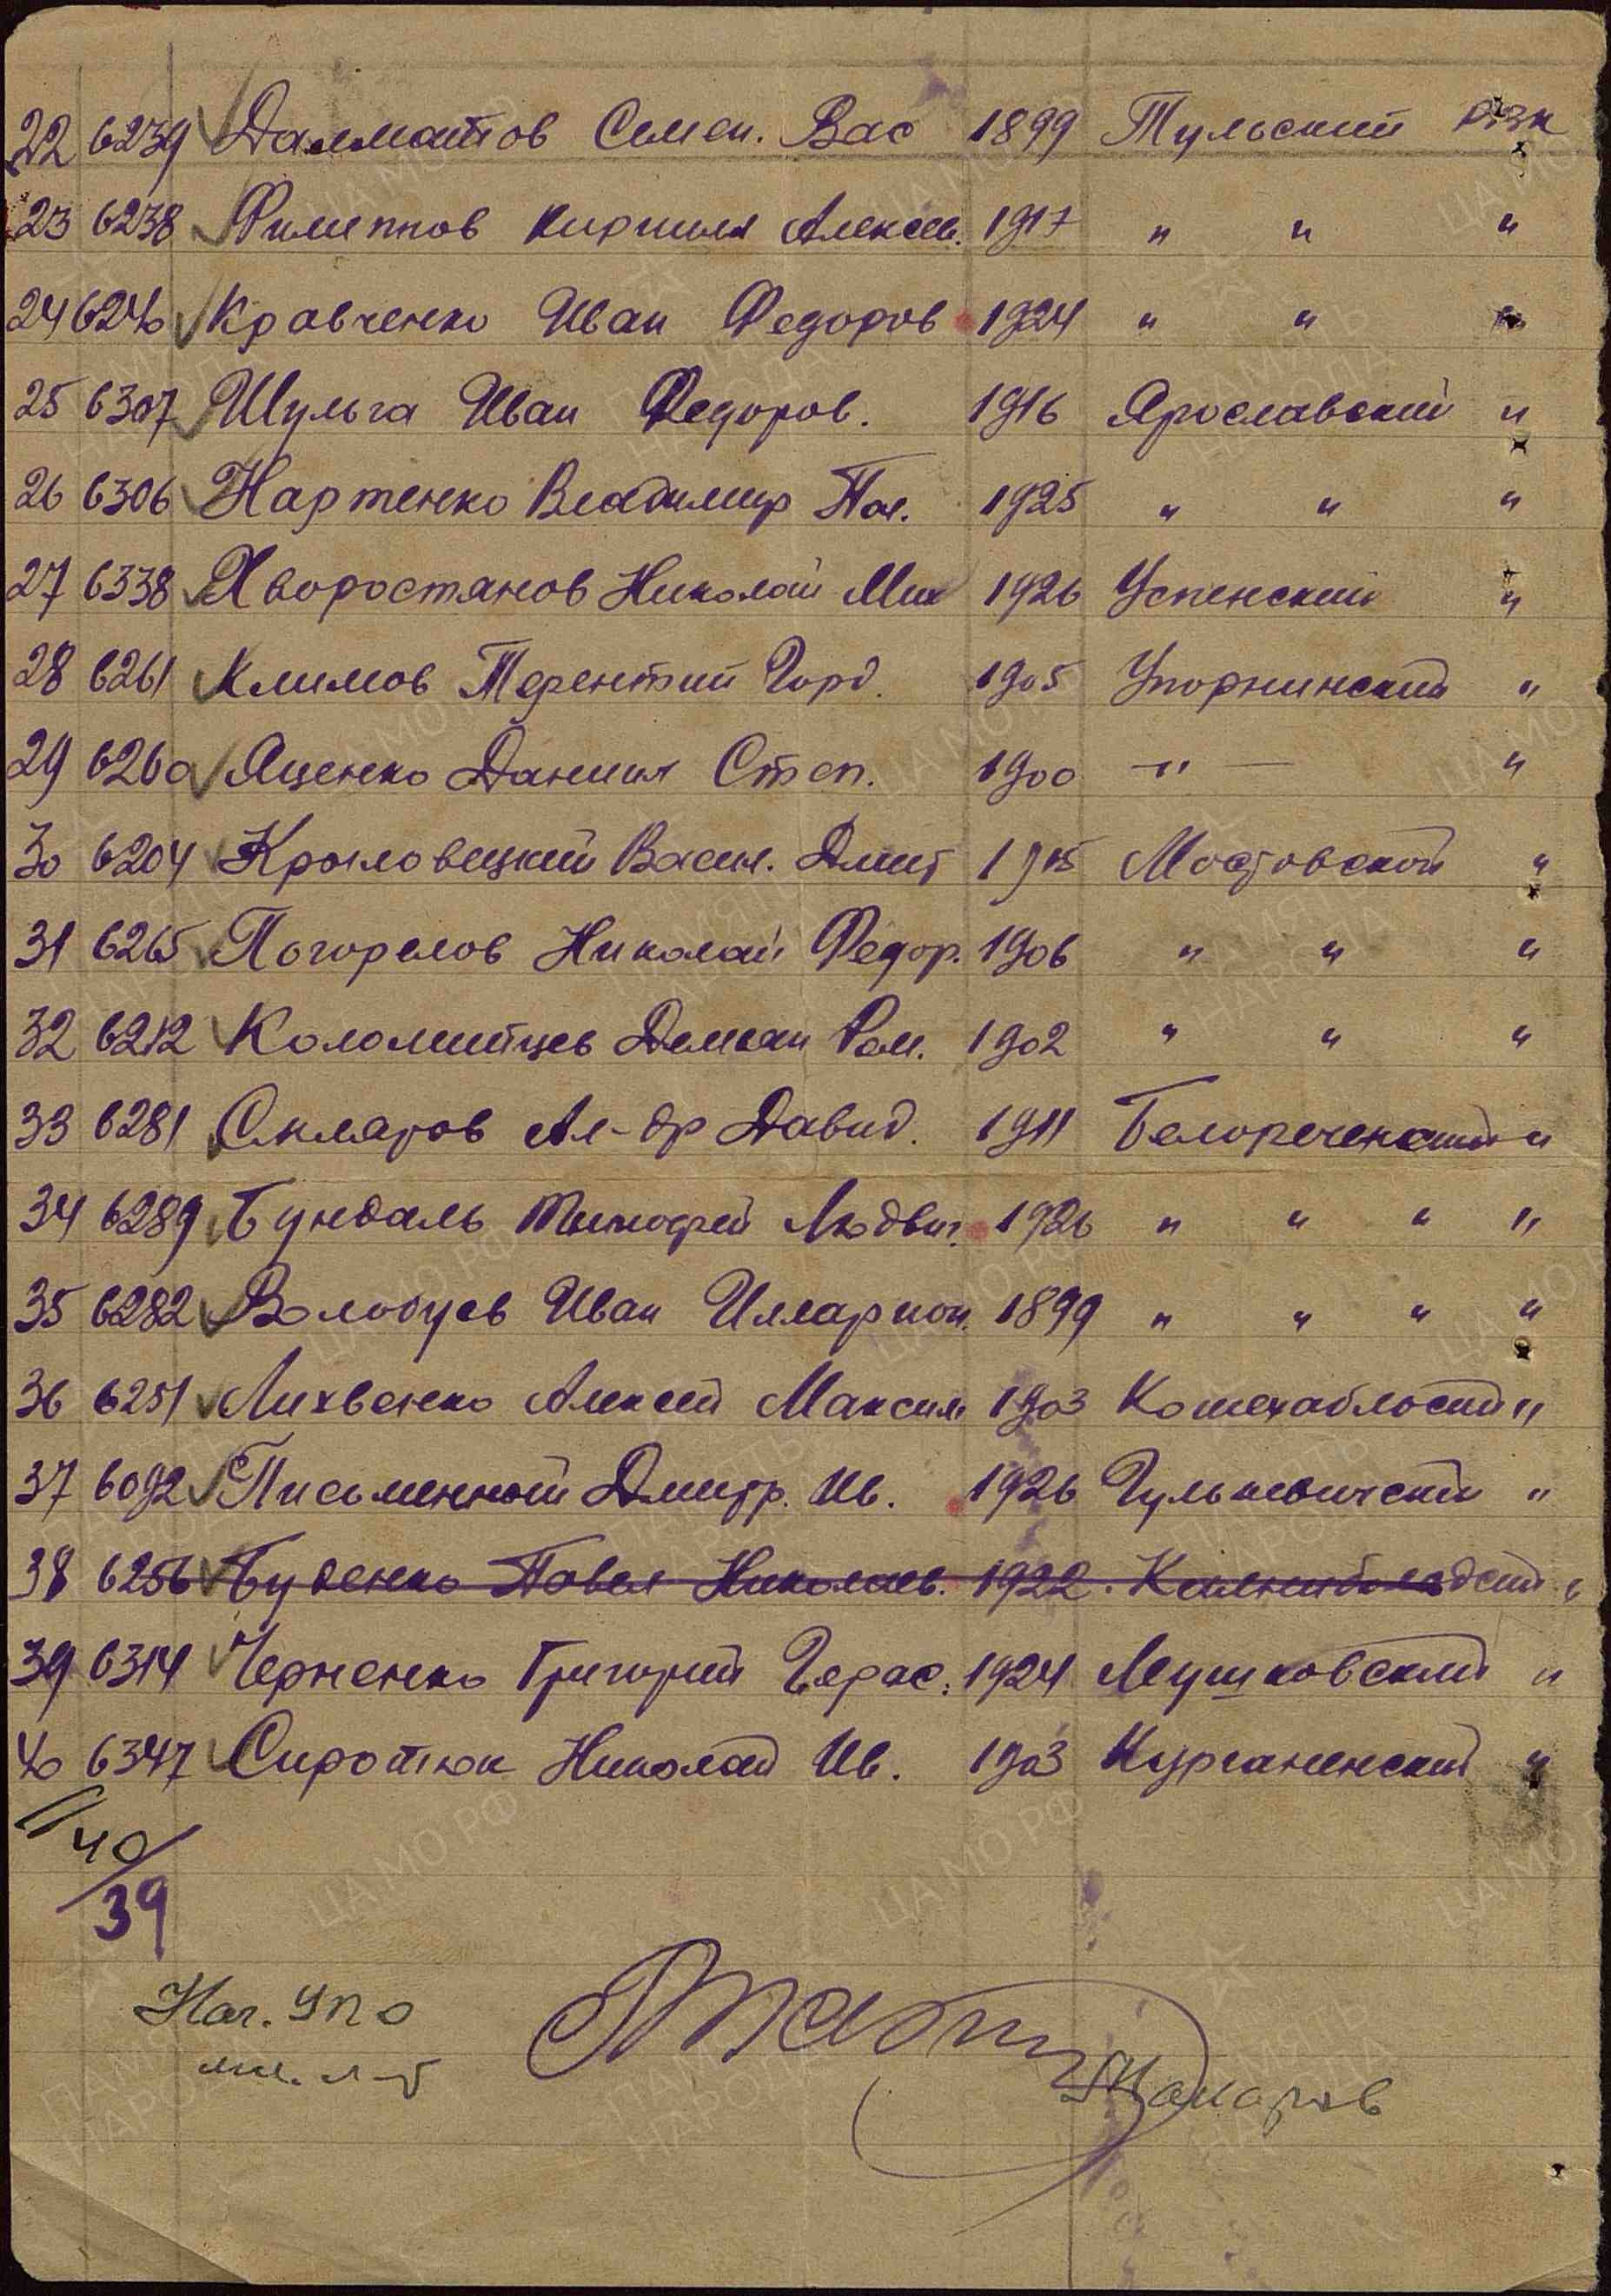 22 6239 Далматов Семен. Вас 1899 Тульский РВК
23 6238 Филиппов Кирилл Алексеев. 1917 " " "
24 6240 Кравченко Иван Федоров 1924 " " "
25 6307 Шульга Иван Федоров. 1916 Ярославский "
26 6306 Нартенко Владимир Пав. 1925 " " "
27 6338 Хворостянов Николай Мих 1926 Успенский "
28 6261 Климов Терентий Горд. 1905 Упорнинский "
29 6260 Яценко Даниил Степ. 1900 —"— "
30 6204 Крыловецкий Васил. Дмит Мостовской "
31 6265 Погорелов Николай Федор. 1906 " " "
32 6212 Коломийцев Демьян Ром. 1902 " " "
33 6281 Скляров Ал-др Давид. 1911 Белореченский "
34 6289 Бундаль Тимофей Людвиг. 1926 " " " "
35 6282 Волобуев Иван Илларион. 1899 " " " "
36 6251 Лихвенко Алексей Максим 1903 Кошехабльский "
37 6092 Письменный Дмитр. Ив. 1926 Гулькевичский "
38 6256 Буденко Павел Николаев. 1922. "
39 6314 Черненко Григорий Герас. 1924 "
40 6347 Сиротюк Николай Ив. 1903 Курганенский "
40/39
Нач. УПО
мл. л-т
Макаров